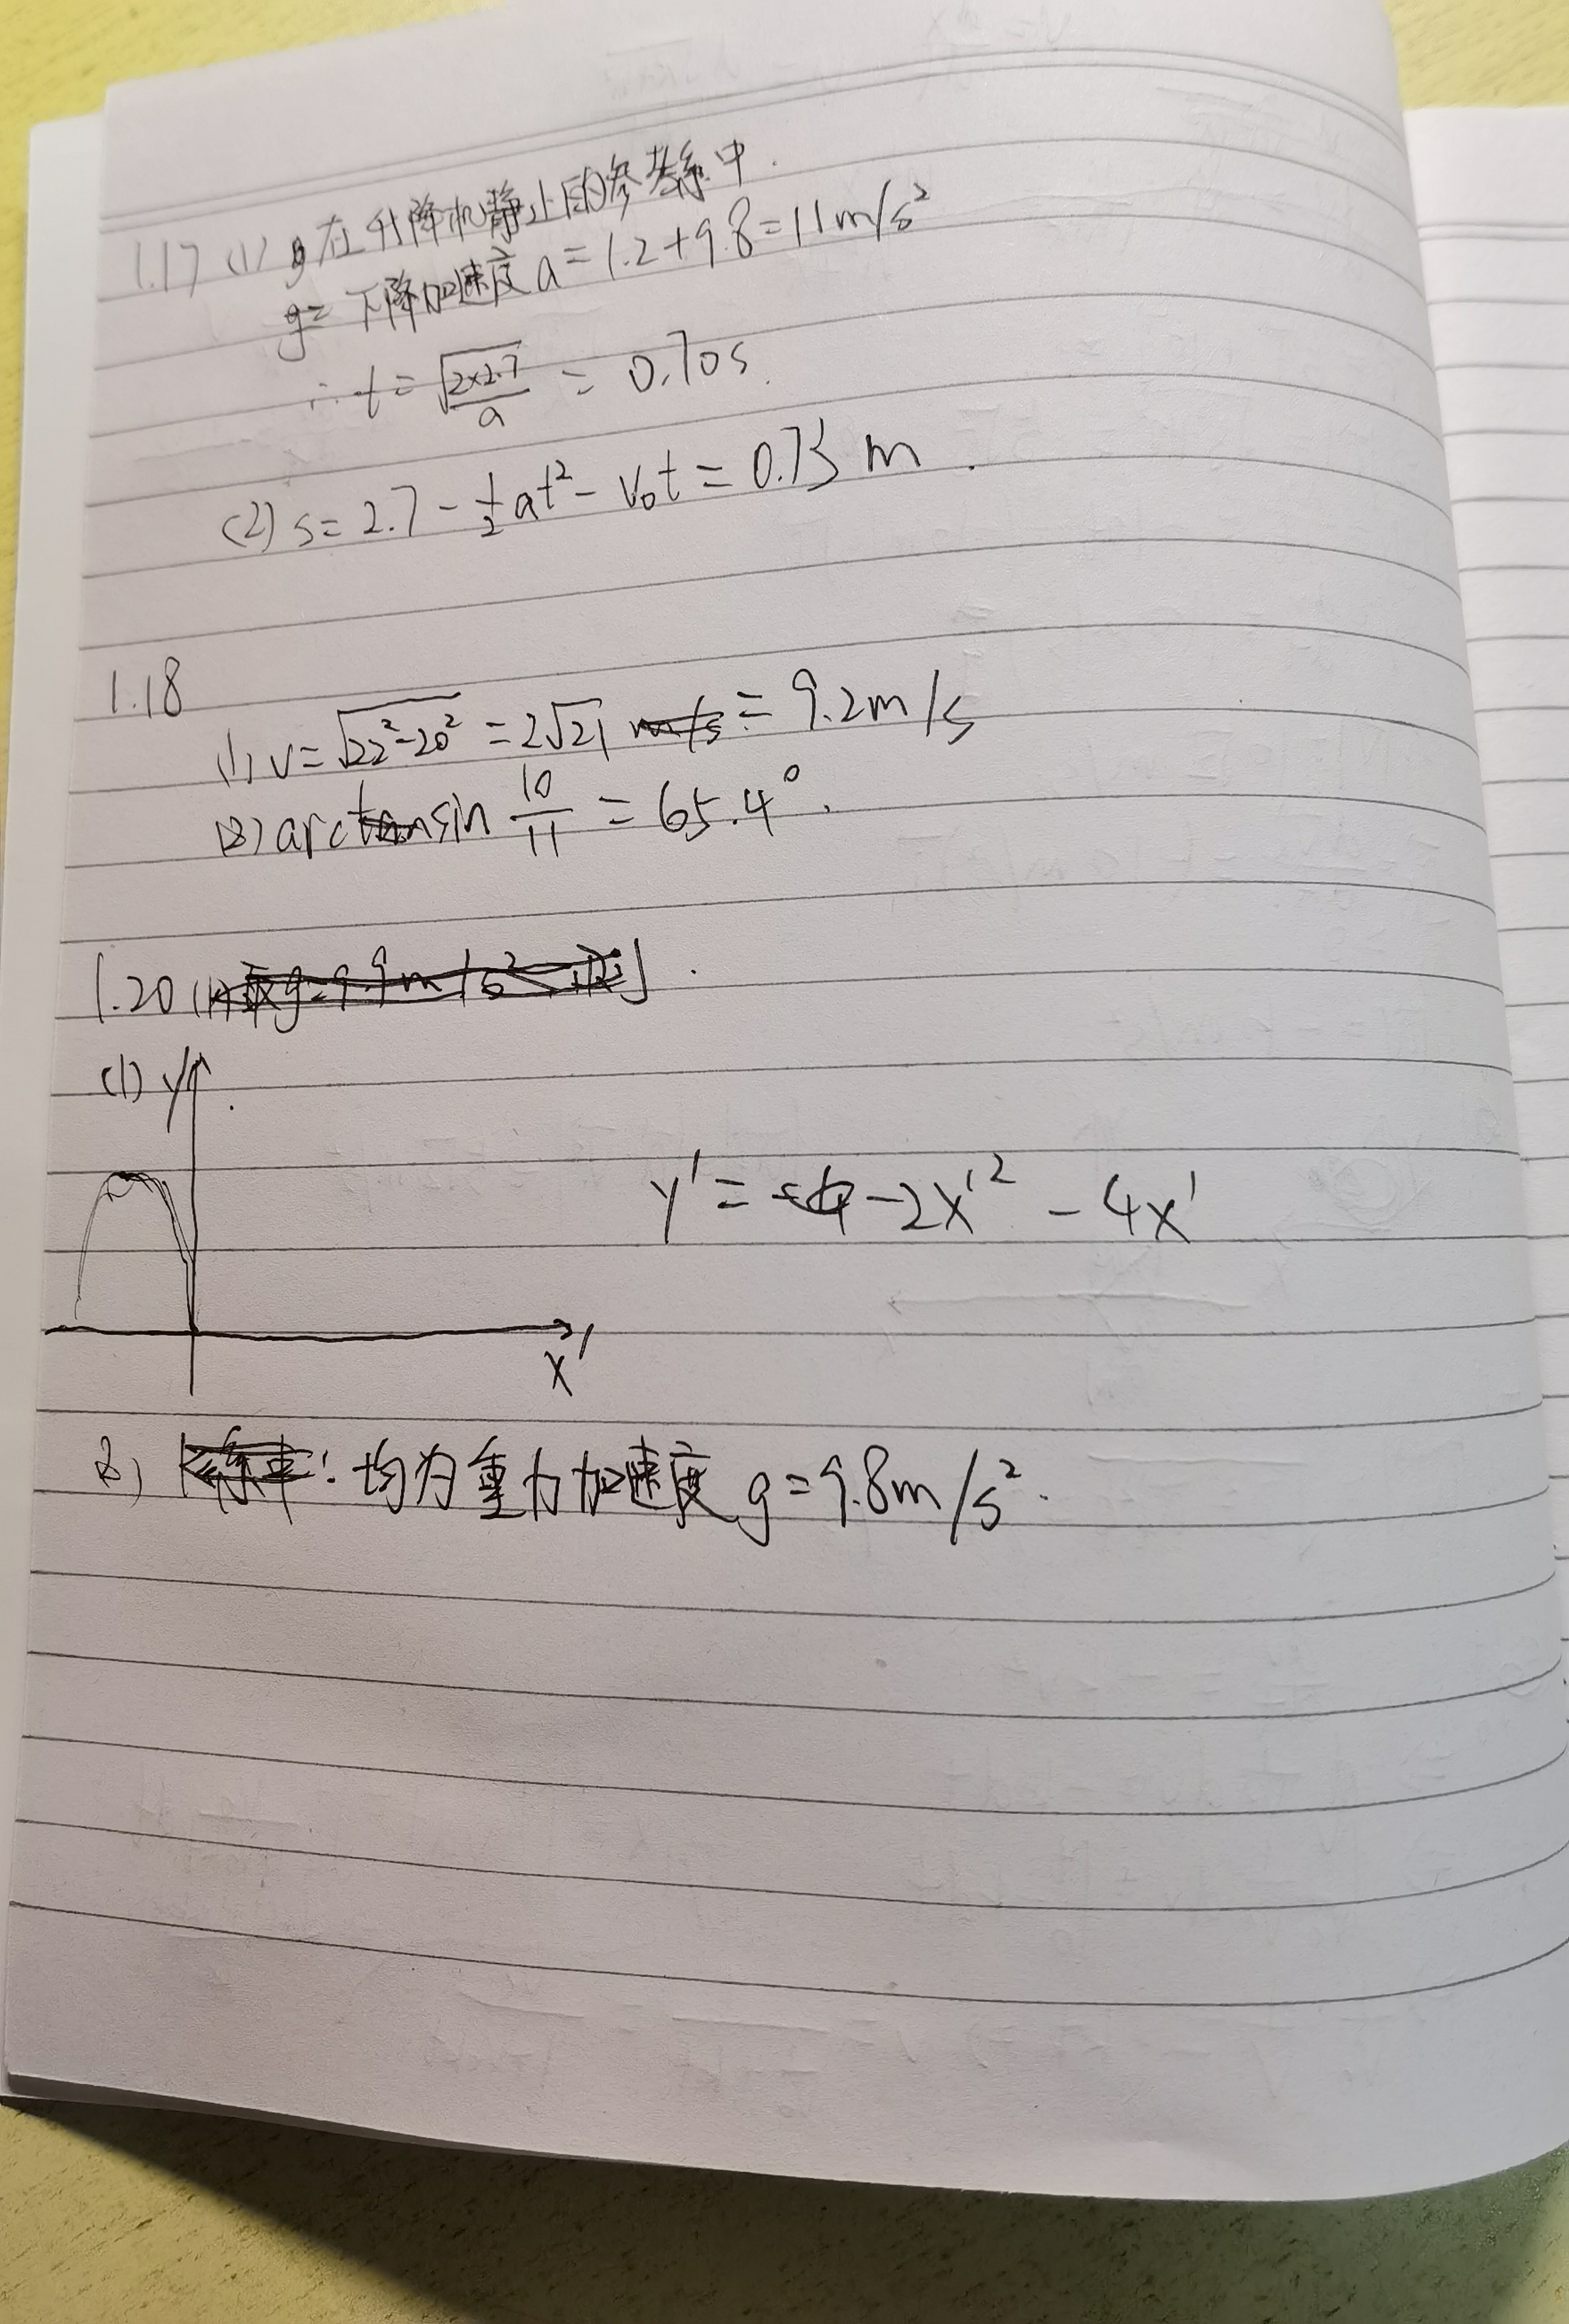 1.17 (1) 在升降机静止的参考系中.
下降加速度 a = 1.2+9.8 = 11m/s²
∴ t = √(2×2.7/a) = 0.70s.
(2) s = 2.7 - ½at² - v₀t = 0.73 m.
1.18
(1) v = √(22²-20²) = 2√21 = 9.2m/s
(2) arcsin 10/11 = 65.4°.
1.20
(1) y'
y' = -2x'² - 4x'
x'
(2) 均为重力加速度 g = 9.8m/s².